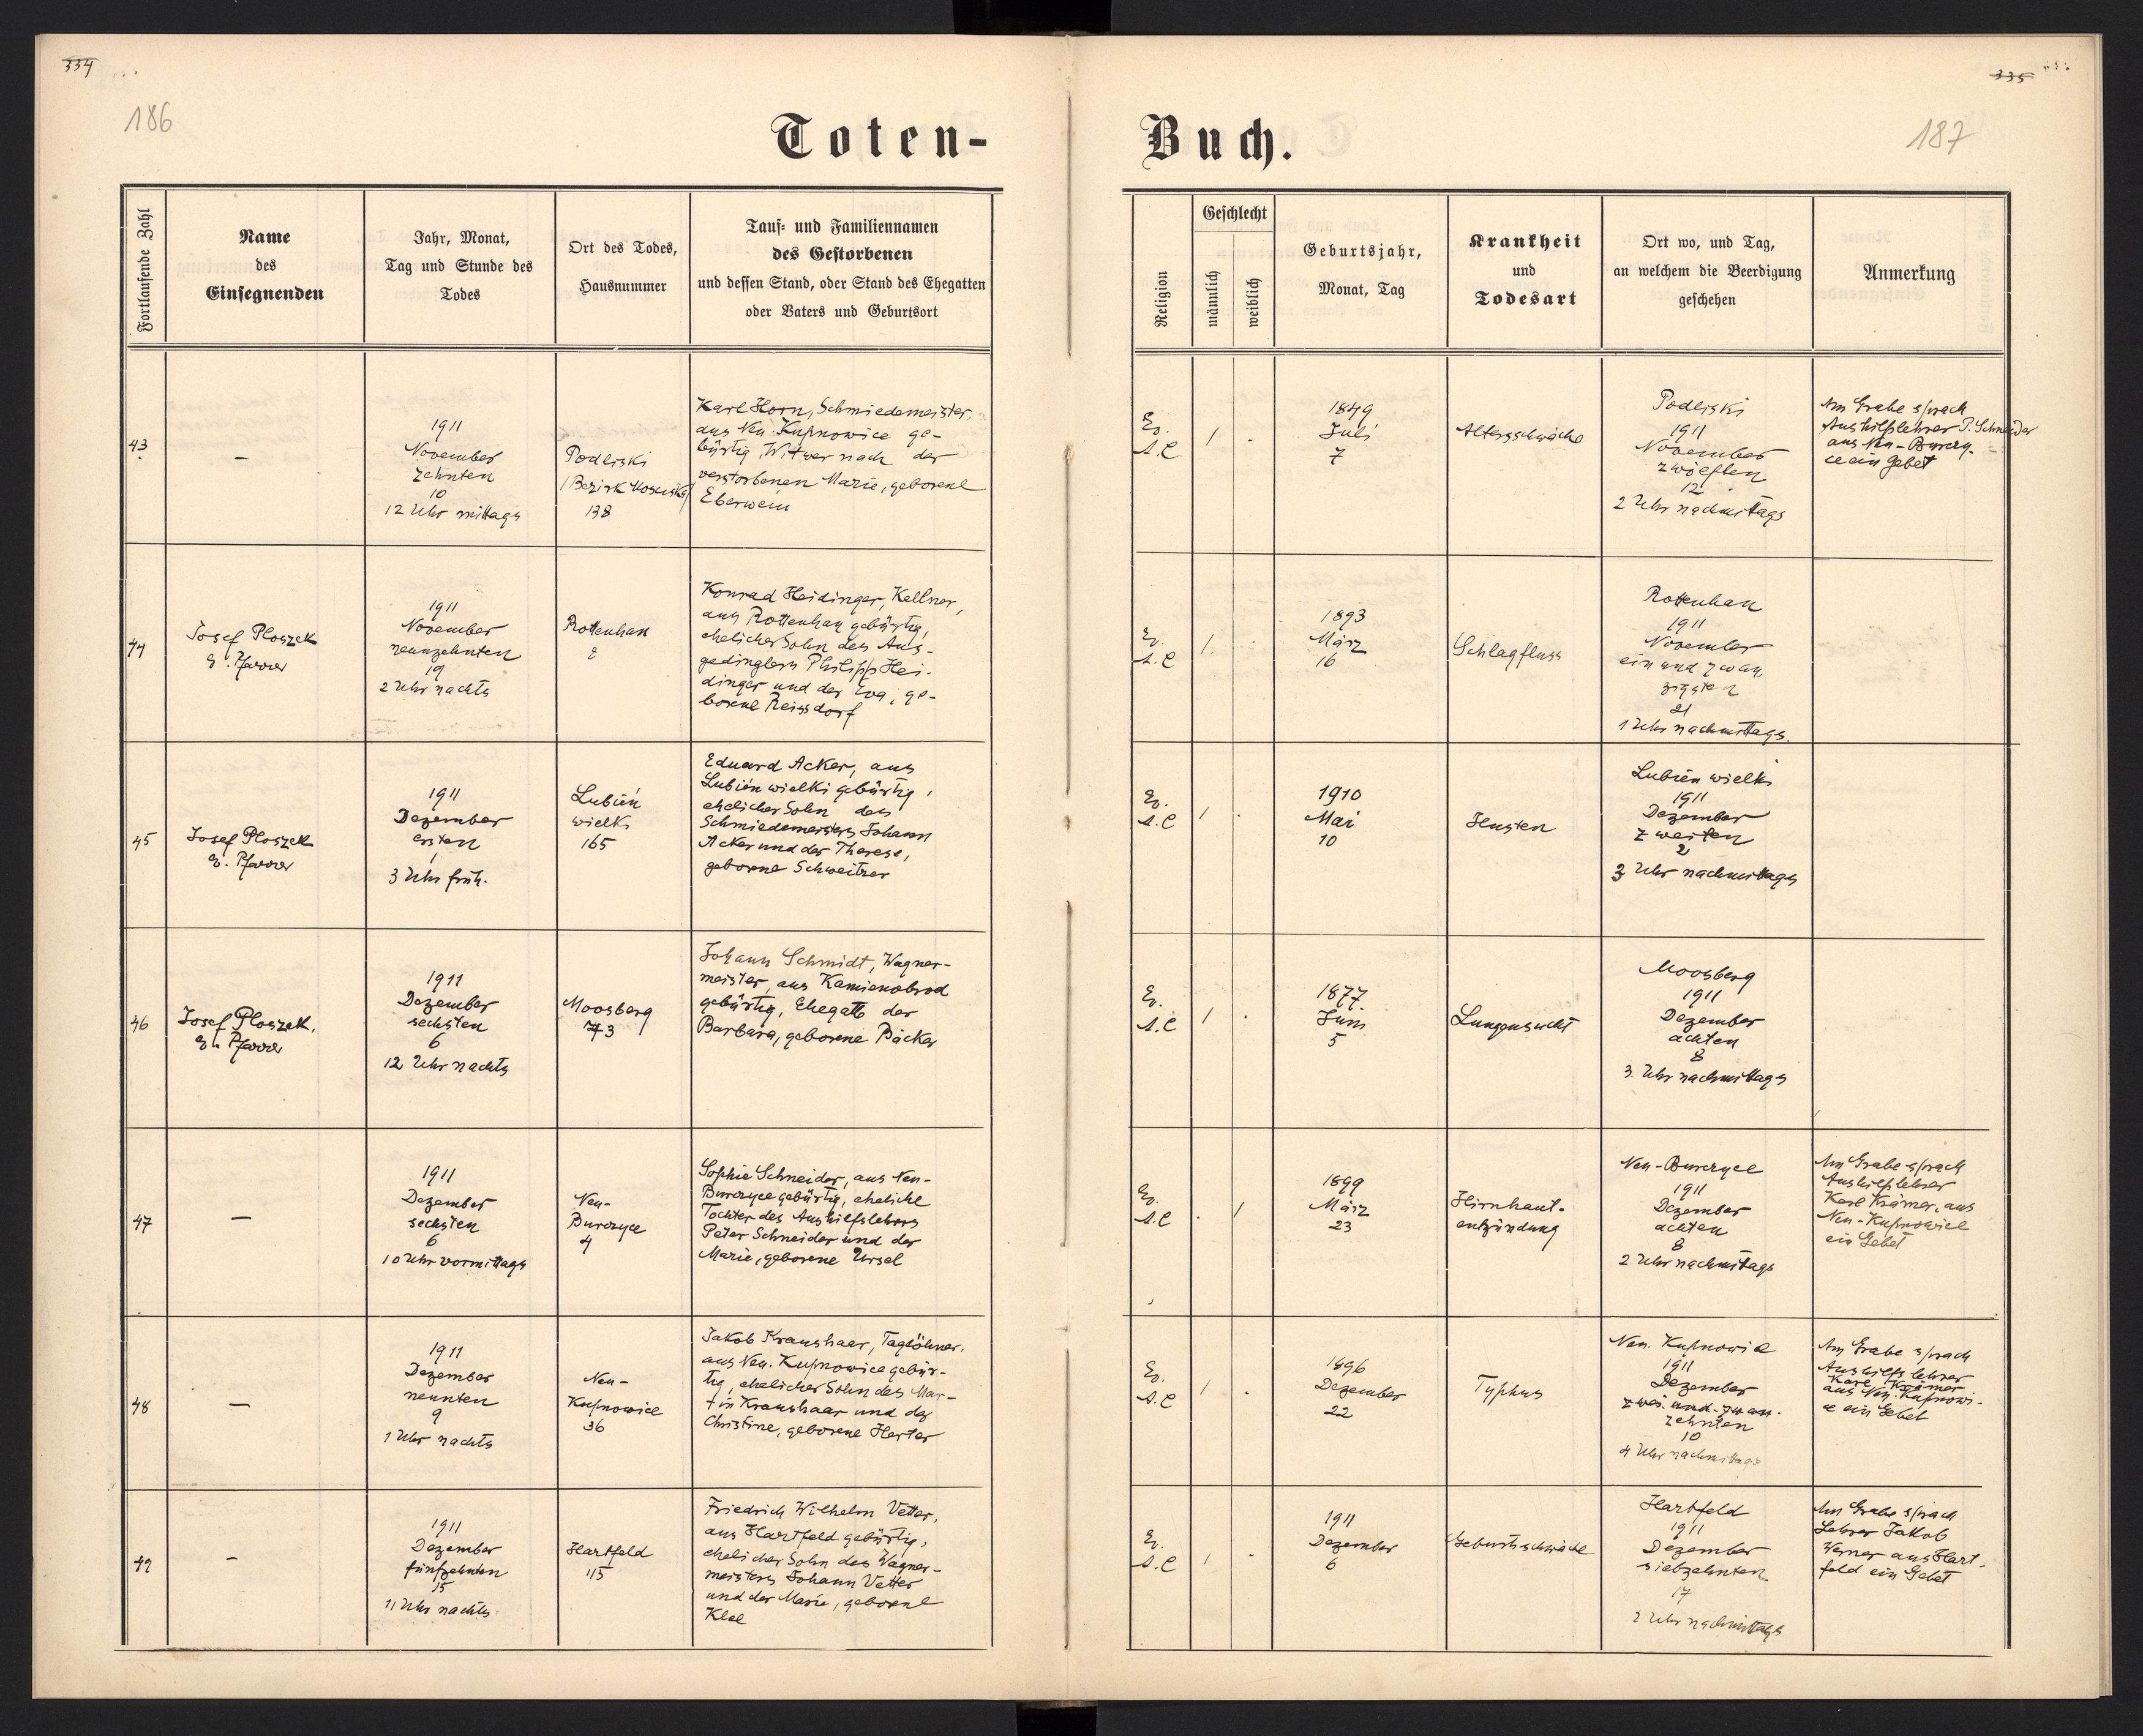 334
186
Toten-
Fortlaufende Zahl
Name
des
Einsegnenden
Jahr, Monat,
Tag und Stunde des
Todes
Ort des Todes,
Hausnummer
Tauf- und Familiennamen
des Gestorbenen
und dessen Stand, oder Stand des Ehegatten
oder Vaters und Geburtsort
43
—
1911
November
zehnten
10
12 Uhr mittags
Podliski
(Bezirk Mosciska)
138
Karl Horn, Schmiedemeister,
aus Neu-Kupnowice ge-
bürtig, Witwer nach der
verstorbenen Marie, geborene
Eberwein
44
Josef Ploszek
ev. Pfarrer
1911
November
neunzehnten
19
2 Uhr nachts
Rottenhan
8
Konrad Heidinger, Kellner,
aus Rottenhan gebürtig,
ehelicher Sohn des Aus-
gedinglers Philipp Hei-
dinger und der Eva, ge-
borene Reissdorf
45
Josef Ploszek
ev. Pfarrer
1911
Dezember
ersten
1
3 Uhr früh.
Lubień
wielki
165
Eduard Acker, aus
Lubień wielki gebürtig,
ehelicher Sohn des
Schmiedemeisters Johann
Acker und der Therese,
geborene Schweitzer
46
Josef Ploszek,
ev. Pfarrer
1911
Dezember
sechsten
6
12 Uhr nachts
Moosberg
73
Johann Schmidt, Wagner-
meister, aus Kamienobrod
gebürtig, Ehegatte der
Barbara, geborene Bäcker
47
—
1911
Dezember
sechsten
6
10 Uhr vormittags
Neu-
Burczyce
4
Sophie Schneider, aus Neu-
Burczyce gebürtig, eheliche
Tochter des Aushilfslehrers
Peter Schneider und der
Marie, geborene Ursel
48
—
1911
Dezember
neunten
9
1 Uhr nachts
Neu-
Kupnowice
36
Jakob Kraushaar, Taglöhner,
aus Neu-Kupnowice gebür-
tig, ehelicher Sohn des Mar-
tin Kraushaar und der
Christine, geborene Harter
49
—
1911
Dezember
fünfzehnten
15
11 Uhr nachts
Hartfeld
115
Friedrich Wilhelm Vetter,
aus Hartfeld gebürtig,
ehelicher Sohn des Wagner-
meisters Johann Vetter
und der Marie, geborene
Klee
335
187
Buch.
Religion
Geschlecht
männlich
weiblich
Geburtsjahr,
Monat, Tag
Krankheit
und
Todesart
Ort wo, und Tag,
an welchem die Beerdigung
geschehen
Anmerkung
Ev.
A.C
1
.
1849
Juli
7
Altersschwäche
Podliski
1911
November
zwölften
12
2 Uhr nachmittags
Am Grabe sprach
Aushilfslehrer P. Schneider
aus Neu-Burczy-
ce ein Gebet
Ev.
A.C
1
.
1893
März
16
Schlagfluss
Rottenhan
1911
November
ein und zwan
zigsten
21
1 Uhr nachmittags.
Ev.
A.C
1
.
1910
Mai
10
Husten
Lubień wielki
1911
Dezember
zweiten
2
3 Uhr nachmittags
Ev.
A.C
1
.
1877
Juni
5
Lungensucht
Moosberg
1911
Dezember
achten
8
3 Uhr nachmittags
Ev.
A.C
.
1
1899
März
23
Hirnhaut-
entzündung
Neu-Burczyce
1911
Dezember
achten
8
2 Uhr nachmittags
Am Grabe sprach
Aushilfslehrer
Karl Krämer, aus
Neu-Kupnowice
ein Gebet
Ev.
A.C
1
.
1896
Dezember
22
Typhus
Neu-Kupnowice
1911
Dezember
zwei-und-zwan-
zehnten
10
4 Uhr nachmittags
Am Grabe sprach
Aushilfslehrer
Karl Krämer
aus Neu-Kupnowi-
ce ein Gebet
Ev.
A.C
1
.
1911
Dezember
6
Geburtsschwäche
Hartfeld
1911
Dezember
siebzehnten
17
2 Uhr nachmittags
Am Grabe sprach
Lehrer Jakob
Werner aus Hart-
feld ein Gebet